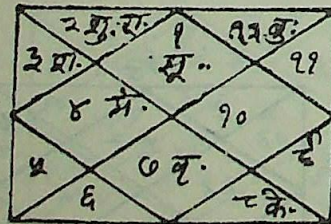 २ शु. रा.
१
सू..
१२ बु.
३ श.
११
४ मं.
१०
५
७ बृ.
९
६
८ के.